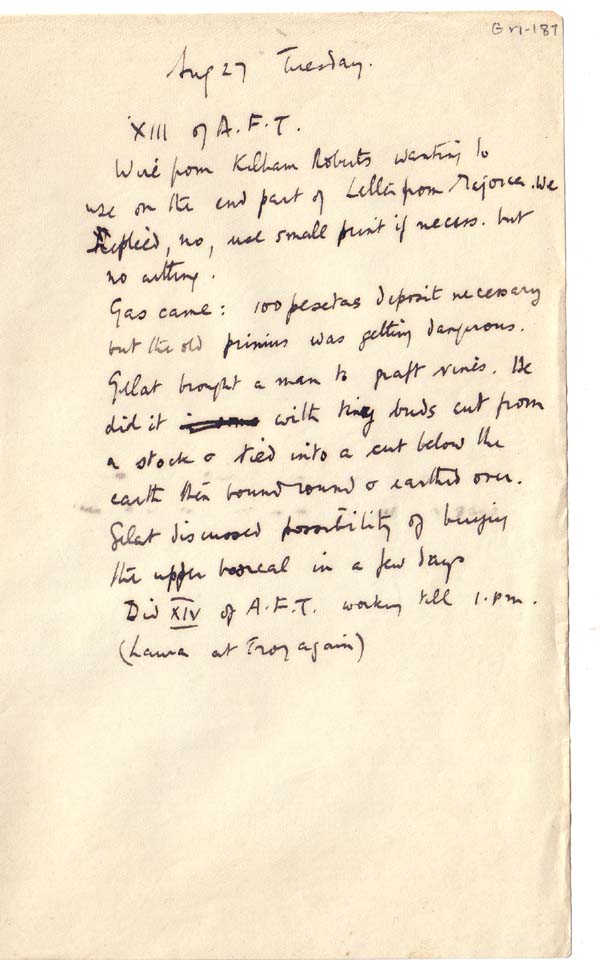 G VI-187
Aug 27 Tuesday.
XIII of A.F.T.
Wire from Kilham Roberts wanting to
use on the end part of Letter from Majorca. We
Replied, no, use small print if necess. but
no cutting.
Gas came: 100 pesetas deposit necessary
but the old primus was getting dangerous.
Gelat brought a man to graft vines. He
did it with tiny buds cut from
a stock & tied into a cut below the
earth then bound round & earthed over.
Gelat discussed possibility of buying
the upper bosreal in a few days
Did XIV of A.F.T. working till 1.pm.
(Laura at Troy again)